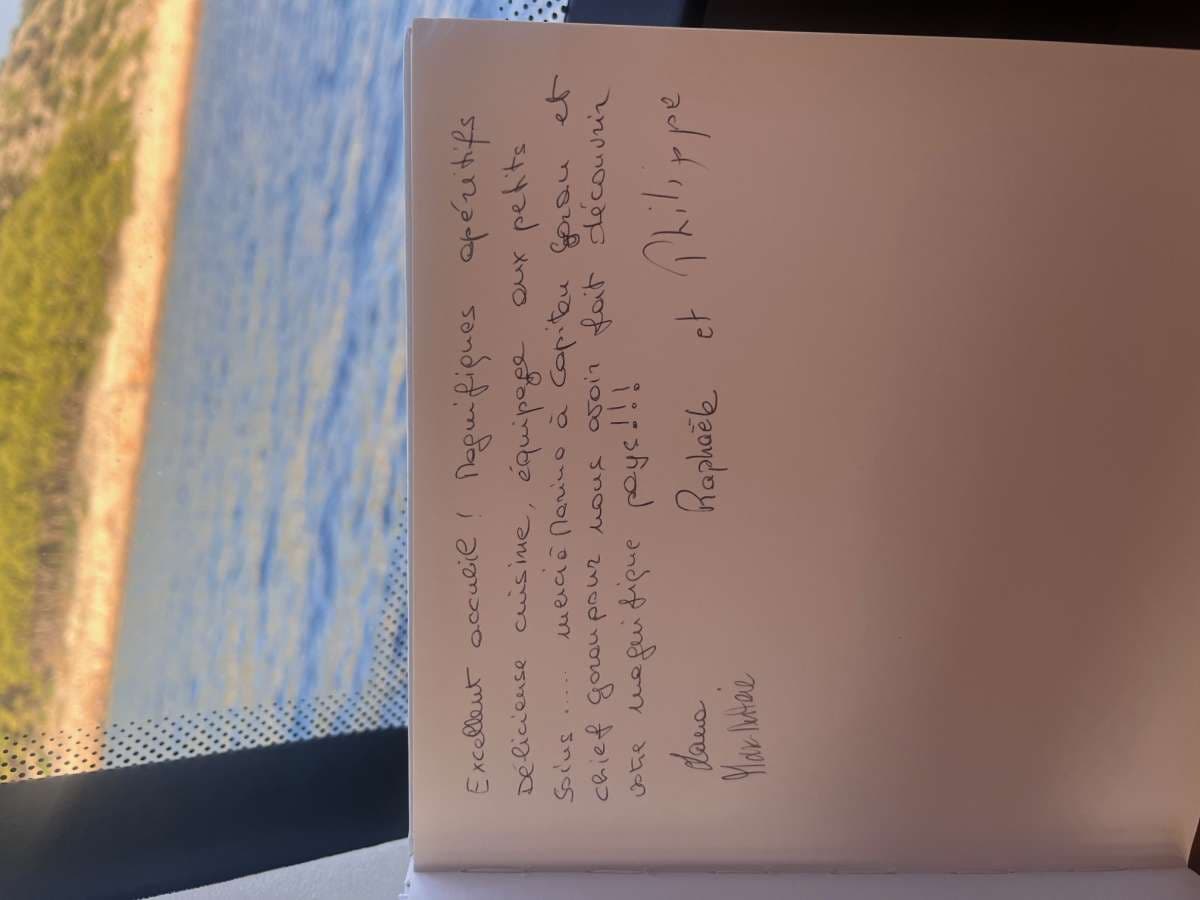 Excellent accueil ! Magnifiques apéritifs
Délicieuse cuisine, équipage aux petits
soins ..... merci à Marino à Capitan Goran et
chief goran pour nous avoir fait découvrir
votre magnifique pays!!!
Raphaële et Philippe